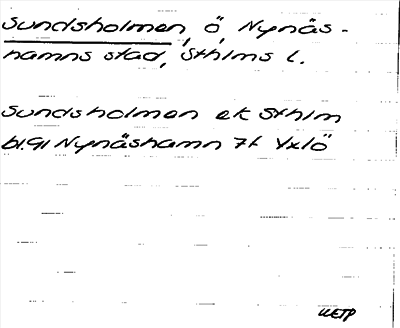 Sundsholmen, ö, Nynäs-
hamns stad, Sthlms l.
Sundsholmen ek Sthlm
bl.91 Nynäshamn 7f Yxlö